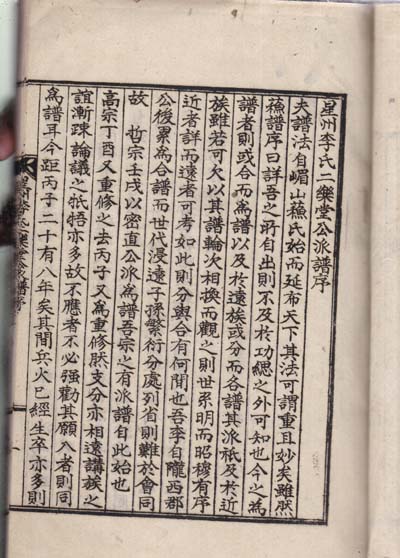 星州李氏二樂堂公派譜序
夫譜法自嵋山蘓氏始而延布天下其法可謂重且妙矣雖然
蘓譜序曰詳吾之所自出則不及於功緦之外可知也今之為
譜者則或合而為譜以及於遠族或分而各譜其派祇及於近
族雖若可欠以其譜輪次相換而觀之則世系明而昭穆有序
近者詳而遠者可考如此則分與合有何間也吾李自隴西郡
公後累為合譜而世代浸遠子孫繁衍分處列省則難於會同
故 哲宗壬戌以密直公派為譜吾宗之有派譜自此始也
高宗丁酉又重修之去丙子又為重修然支分亦相遠講族之
誼漸踈論議之牴牾亦多故不應者不必强勸其願入者則同
為譜耳今距丙子二十有八年矣其間兵火已經生卒亦多則